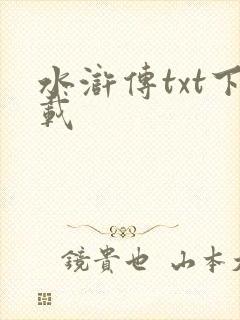 水滸傳txt下
載
鏡貴也 山本